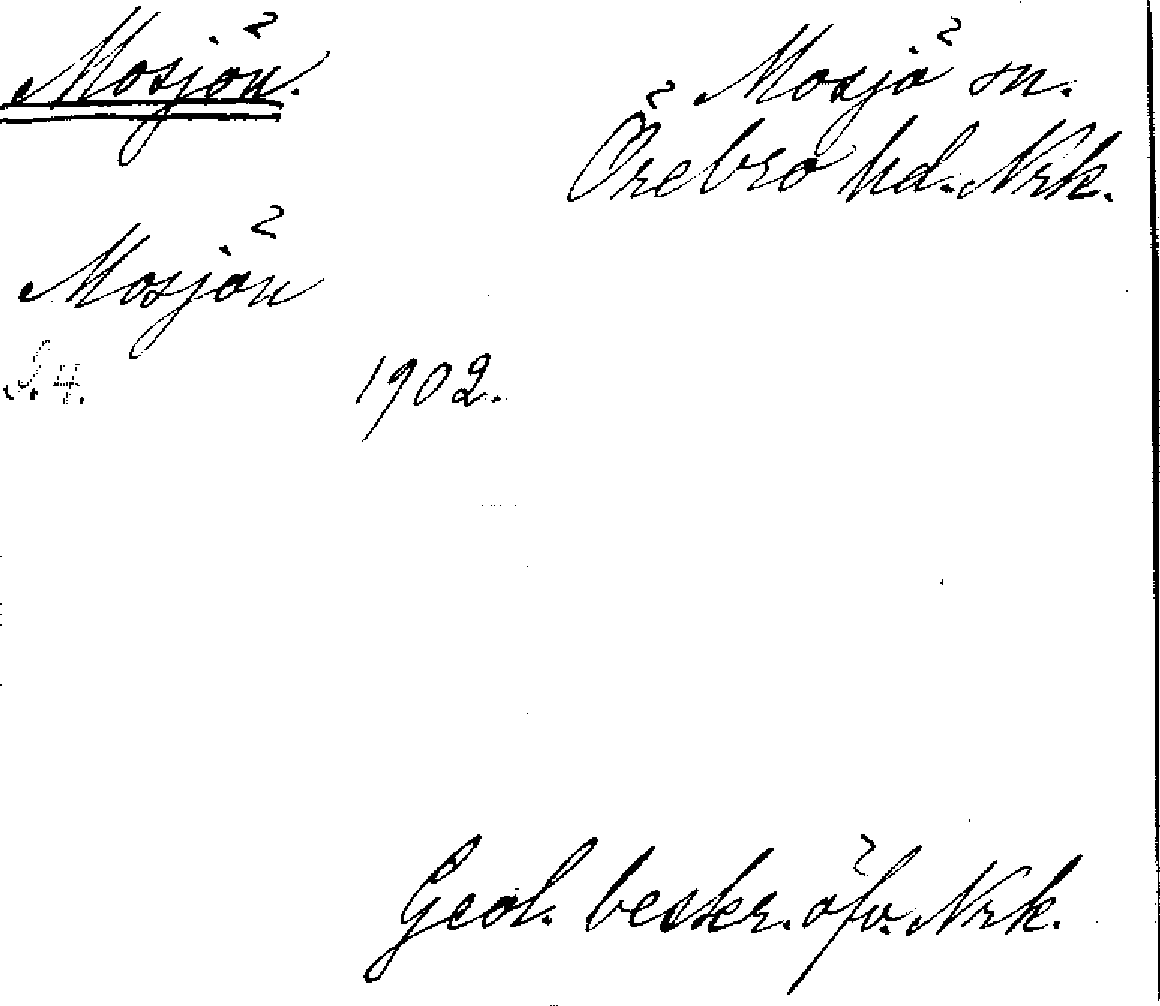 Mosjön.
Mosjö sn.
Örebro hd. Nrk.
Mosjön
S. 4.
1902.
Geol. beskr. öfv. Nrk.